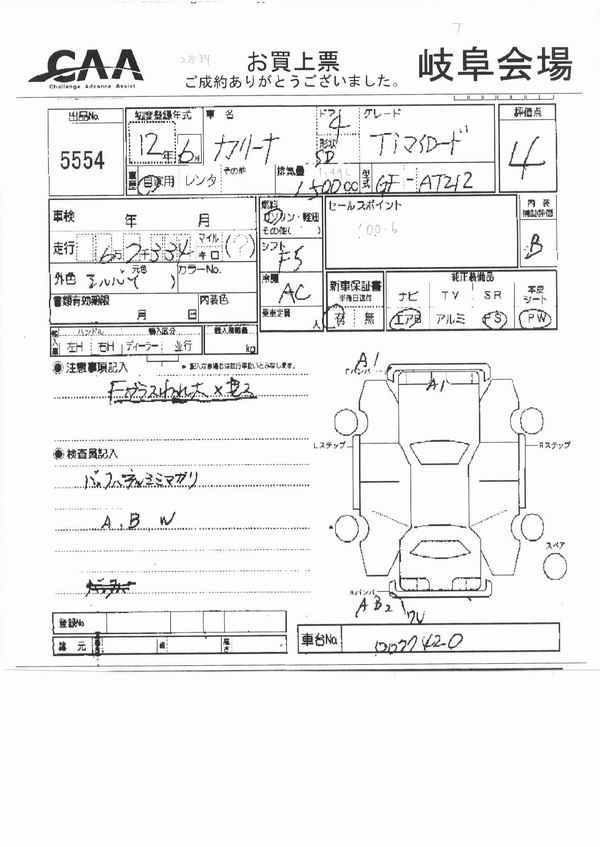 CAA
Challenge Advance Assist
2834
お買上票
ご成約ありがとうございました。
7
岐阜会場
出品No.
5554
初度登録年式
12年 6月
車歴
自家用 レンタ その他
車名
カリーナ
ドア
4
形状
SD
グレード
Tiマイロード
排気量
1500cc
型式
GF-AT212
評価点
4
車検 年 月
走行 6万2千334 マイル キロ (?)
外色 シルバー 元色 ( )
カラーNo.
書類有効期限 月 日
内装色
燃料
ガソリン・軽油
その他( )
シフト
F5
冷房
AC
乗車定員 人
セールスポイント
100.6
内装補助評価
B
新車保証書
※後日送付
有 無
純正装備品
ナビ TV SR 本皮シート
エアB アルミ PS PW
輸入車
ハンドル
左H 右H
輸入区分
ディーラー 並行
積載量
kg
注意事項記入
※ 記入な き場合は走行車扱いとみなします。
Fガラスわれ大×セ2
検査員記入
バックパネルミミマガリ
A、B、W
A1
Fバンパ
A1
Lステップ
Rステップ
スペア
Rバンパ
AB2
W
登録No.
諸元
車台No.
0057420